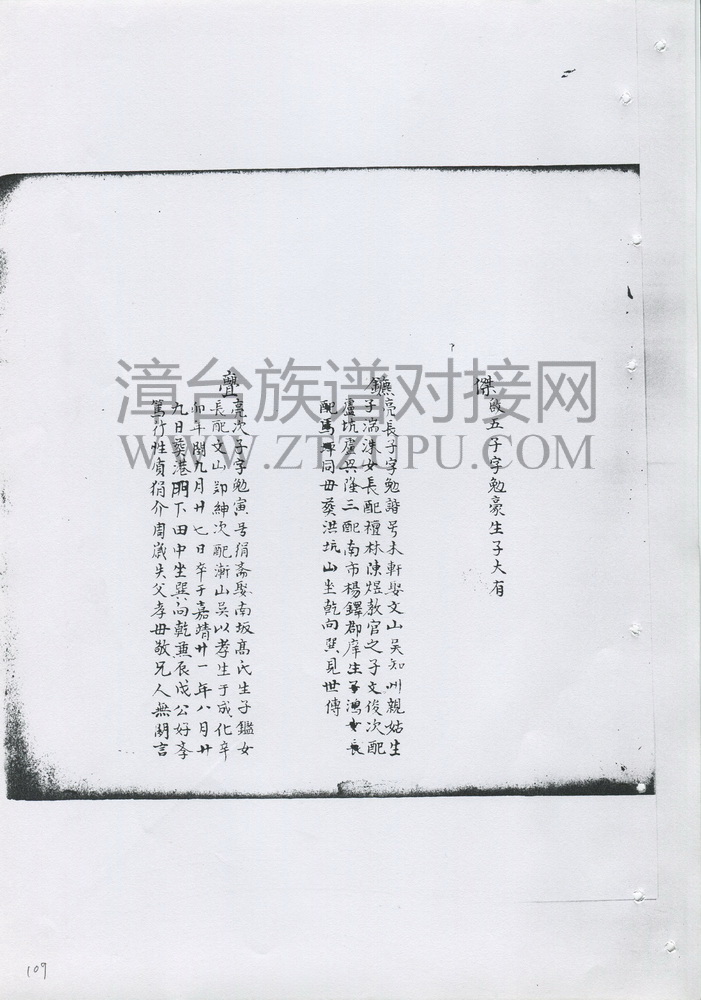 傑 五子字勉豪生子大有
鑣亮長子字勉諧号未軒娶文山吳知州親姑生
子湍洪女長配檀林陳煜教官之子文俊次配
盧坑盧興隆三配南市楊鐸郡庠生 鴻女長
配馬 同毋葬洪坑山坐乾向巽見世傳
亮次子字勉寅号狷斋娶南坂髙氏生子鑑女
長配文山郭紳次配漸山吳以孝生于成化辛
卯年閏九月廿七日卒于嘉靖廿一年八月廿
九日葬港 下田中坐巽向乾兼辰戍公好孝
篤行性貞狷介周歲失父孝毋敬兄人無閒言
漳台族谱对接网
WWW.ZTZUPU.COM
109